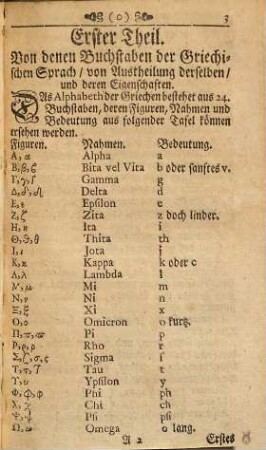 (o) 3
Erster Theil.
Von denen Buchstaben der Griechi-
schen Sprach / von Austheilung derselben /
und deren Eigenschaften.
DAs Alphabeth der Griechen bestehet aus 24.
Buchstaben, deren Figuren, Nahmen und
Bedeutung aus folgender Tafel können
ersehen werden.
Figuren. Nahmen. Bedeutung.
Α, α Alpha a
Β, β, ϐ Bita vel Vita b oder sanftes v.
Γ, γ, Gamma g
Δ, δ, Delta d
Ε, ε Epsilon e
Ζ, ζ Zita z doch linder.
Η, η Ita i
Θ, ϑ, θ Thita th
Ι, ι Jota j
Κ, κ Kappa k oder c
Λ, λ Lambda l
Μ, μ Mi m
Ν, ν Ni n
Ξ, ξ Xi x
Ο, ο Omicron o kurtz.
Π, π, ϖ Pi p
Ρ, ρ Rho r
Σ, ζ, σ, ς Sigma s
Τ, τ, Tau t
Υ, υ Ypsilon y
Φ, φ Phi ph
Χ, χ Chi ch
Ψ, ψ Psi psi
Ω, ω Omega o lang.
A 2 Erstes